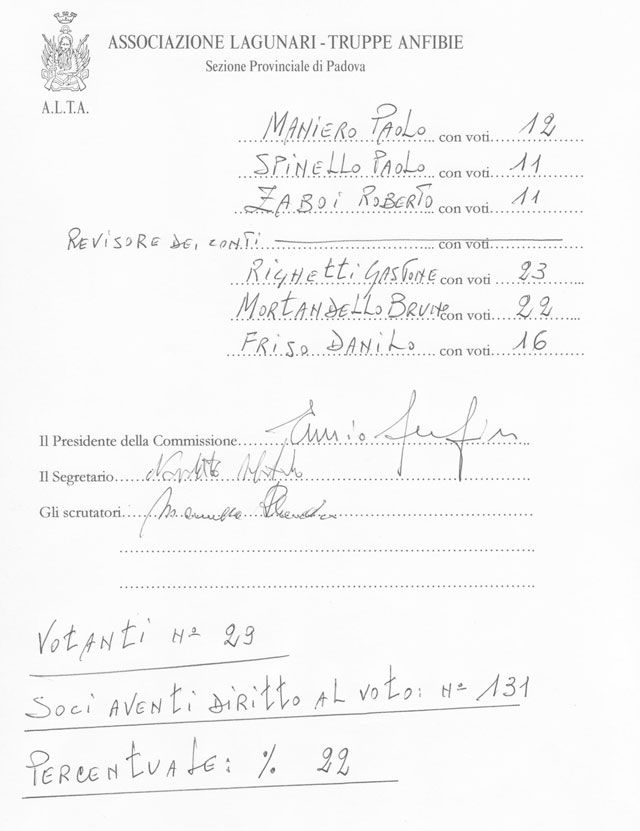 ASSOCIAZIONE LAGUNARI - TRUPPE ANFIBIE
Sezione Provinciale di Padova
A.L.T.A.
MANIERO PAOLO con voti 12
SPINELLO PAOLO con voti 11
ZABOI ROBERTO con voti 11
REVISORE DEI CONTI con voti
RIGHETTI GASTONE con voti 23
MORTANDELLO BRUNO con voti 22
FRISO DANILO con voti 16
Il Presidente della Commissione
Il Segretario
Gli scrutatori
VOTANTI Nº 29
SOCI AVENTI DIRITTO AL VOTO: Nº 131
PERCENTUALE: % 22